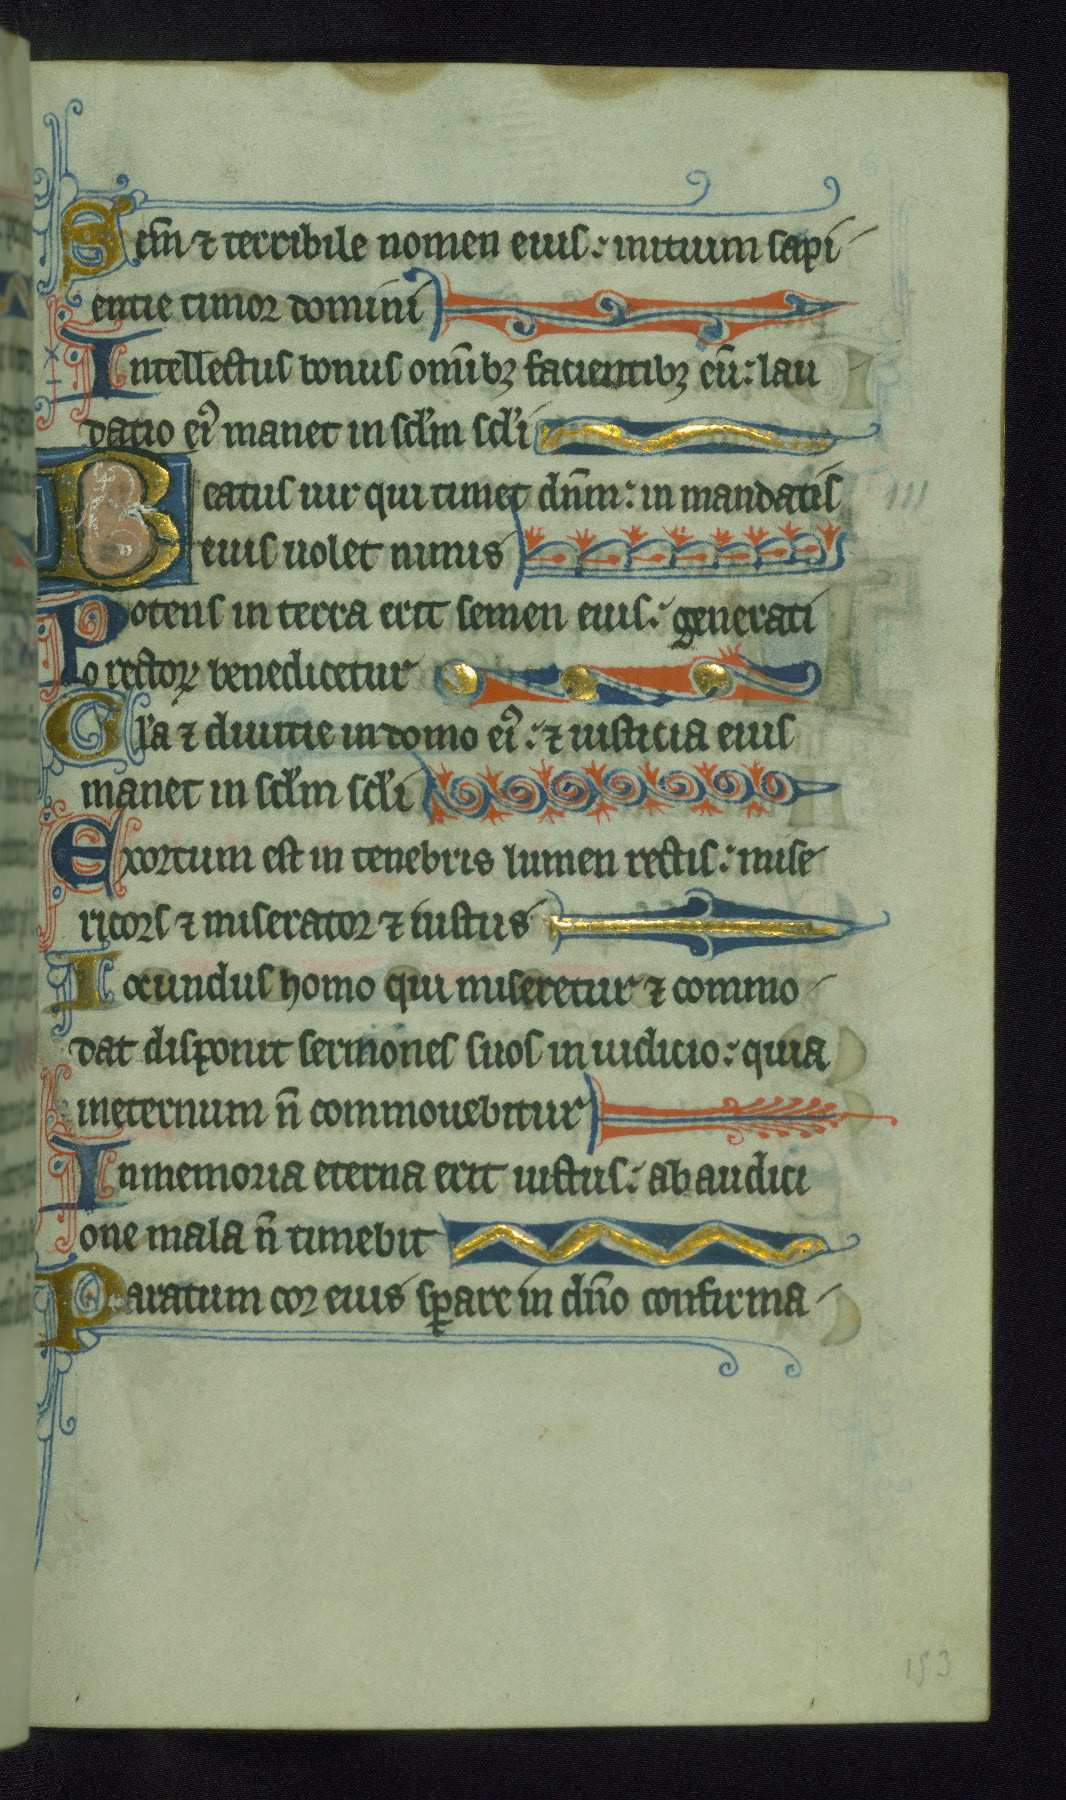 Scm̄ ⁊ terribile nomen eius: initium sapi
entie timor domini
Intellectus bonus omībꝫ facientibꝫ eū: lau
datio eiꝰ manet in sclm̄ scli
Beatus uir qui timet dnm̄: in mandatis
eius uolet nimis
Potens in terra erit semen eius: generati
o rectoꝝ benedicetur
Gl'a ⁊ diuitie in domo eiꝰ: ⁊ iusticia eius
manet in sclm̄ scli
Exortum est in tenebris lumen rectis: mise
ricors ⁊ miserator ⁊ iustus
Iocundus homo qui miseretur ⁊ commo
dat disponit sermones suos in iudicio: quia
ineternum n̄ commouebitur
Inmemoria eterna erit iustus: ab audici
one mala n̄ timebit
Paratum cor eius sꝑare in dn̄o confirma
111
193